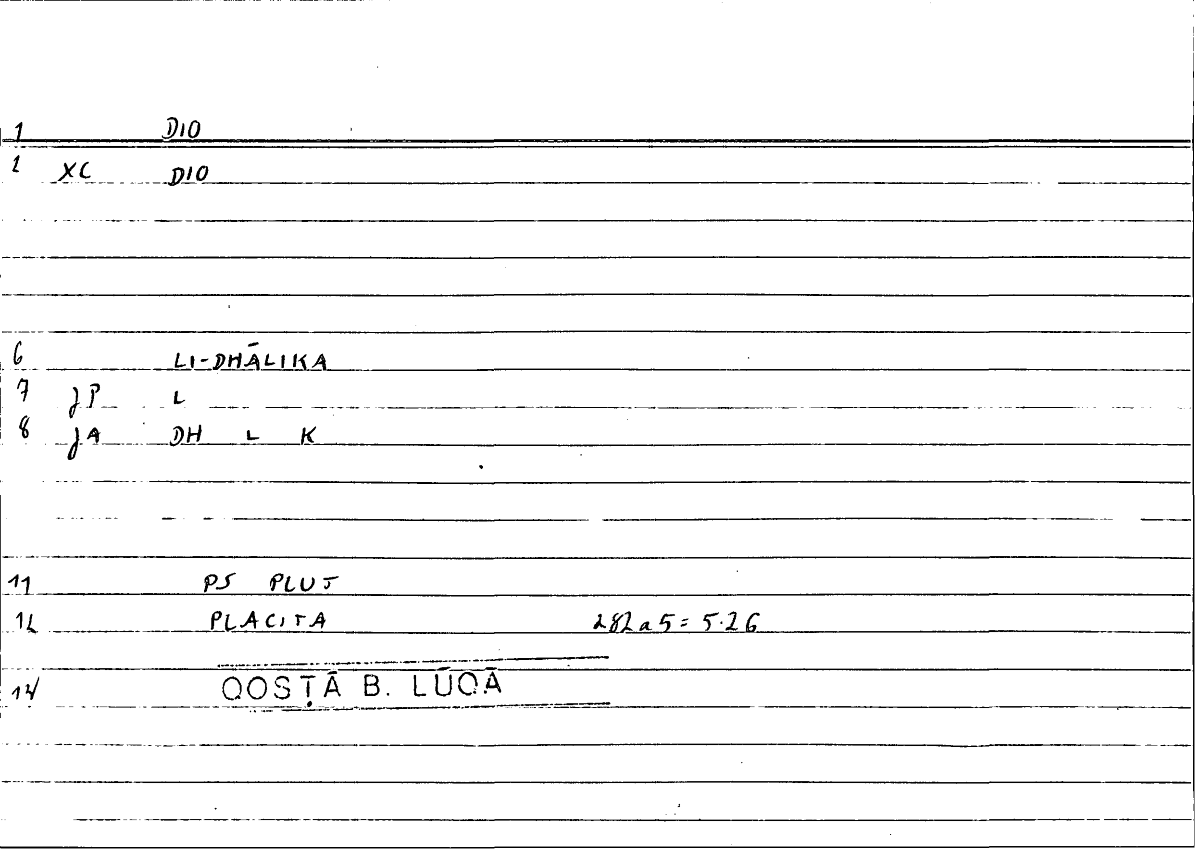 1 DIO
2 XC DIO
6 LI-DHĀLIKA
7 JP L
8 JA DH L K
11 PS PLUT
12 PLACITA 282a5 = 5.26
14 QOSṬĀ B. LŪQĀ